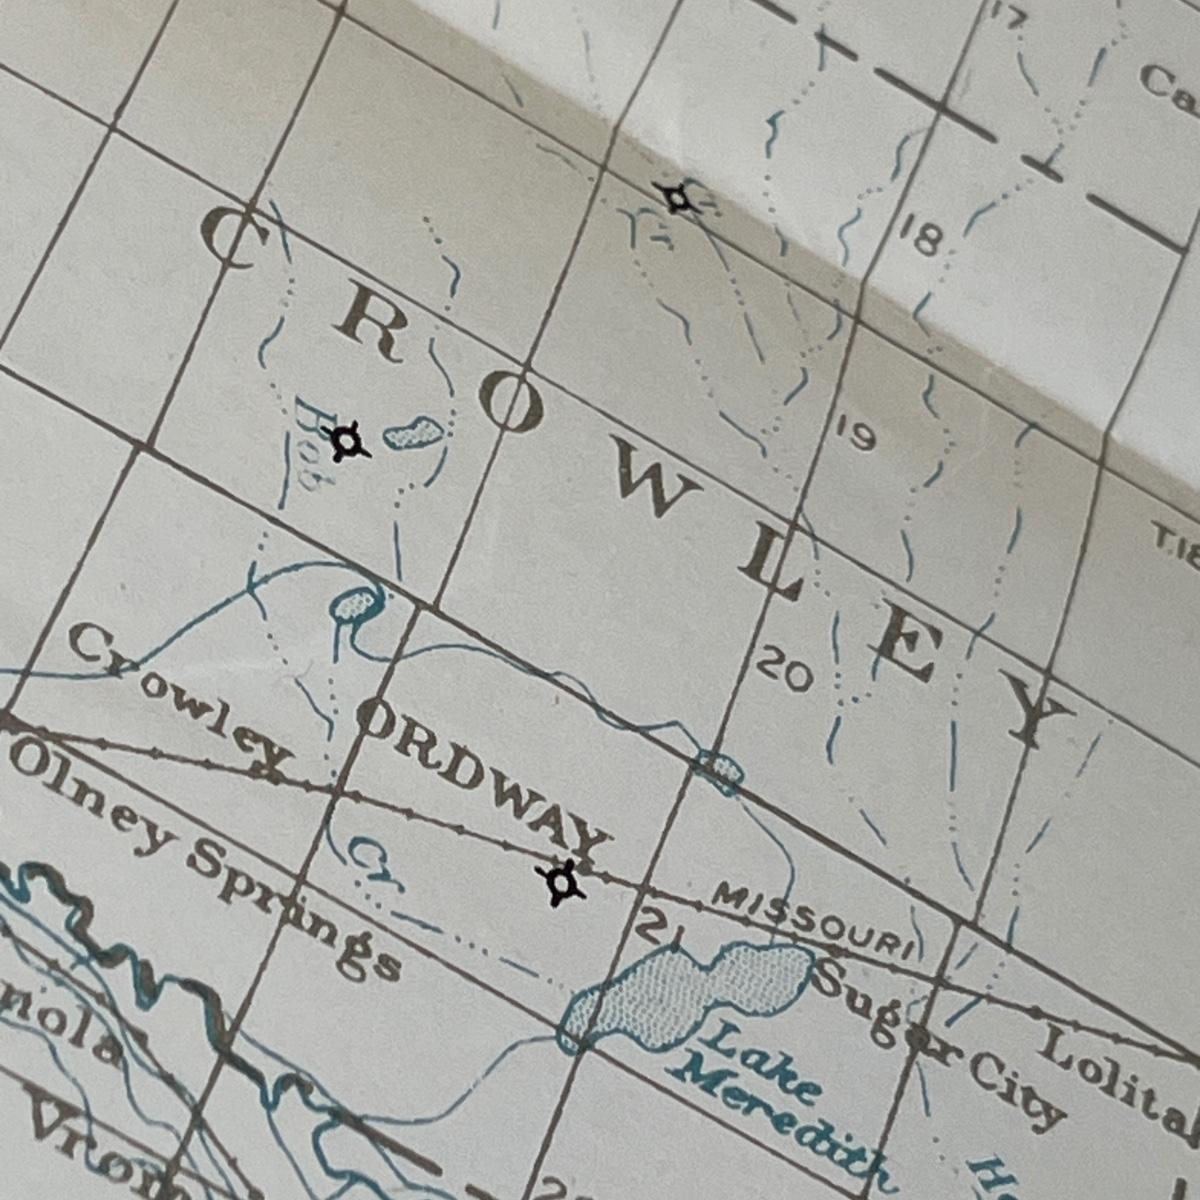 17
Ca
18
CROWLEY
19
T.18
Bob
20
Crowley
ORDWAY
Olney Springs
Cr.
21
MISSOURI
Sugar City
Lolita
Lake
Meredith
nola
Vrom
H
22